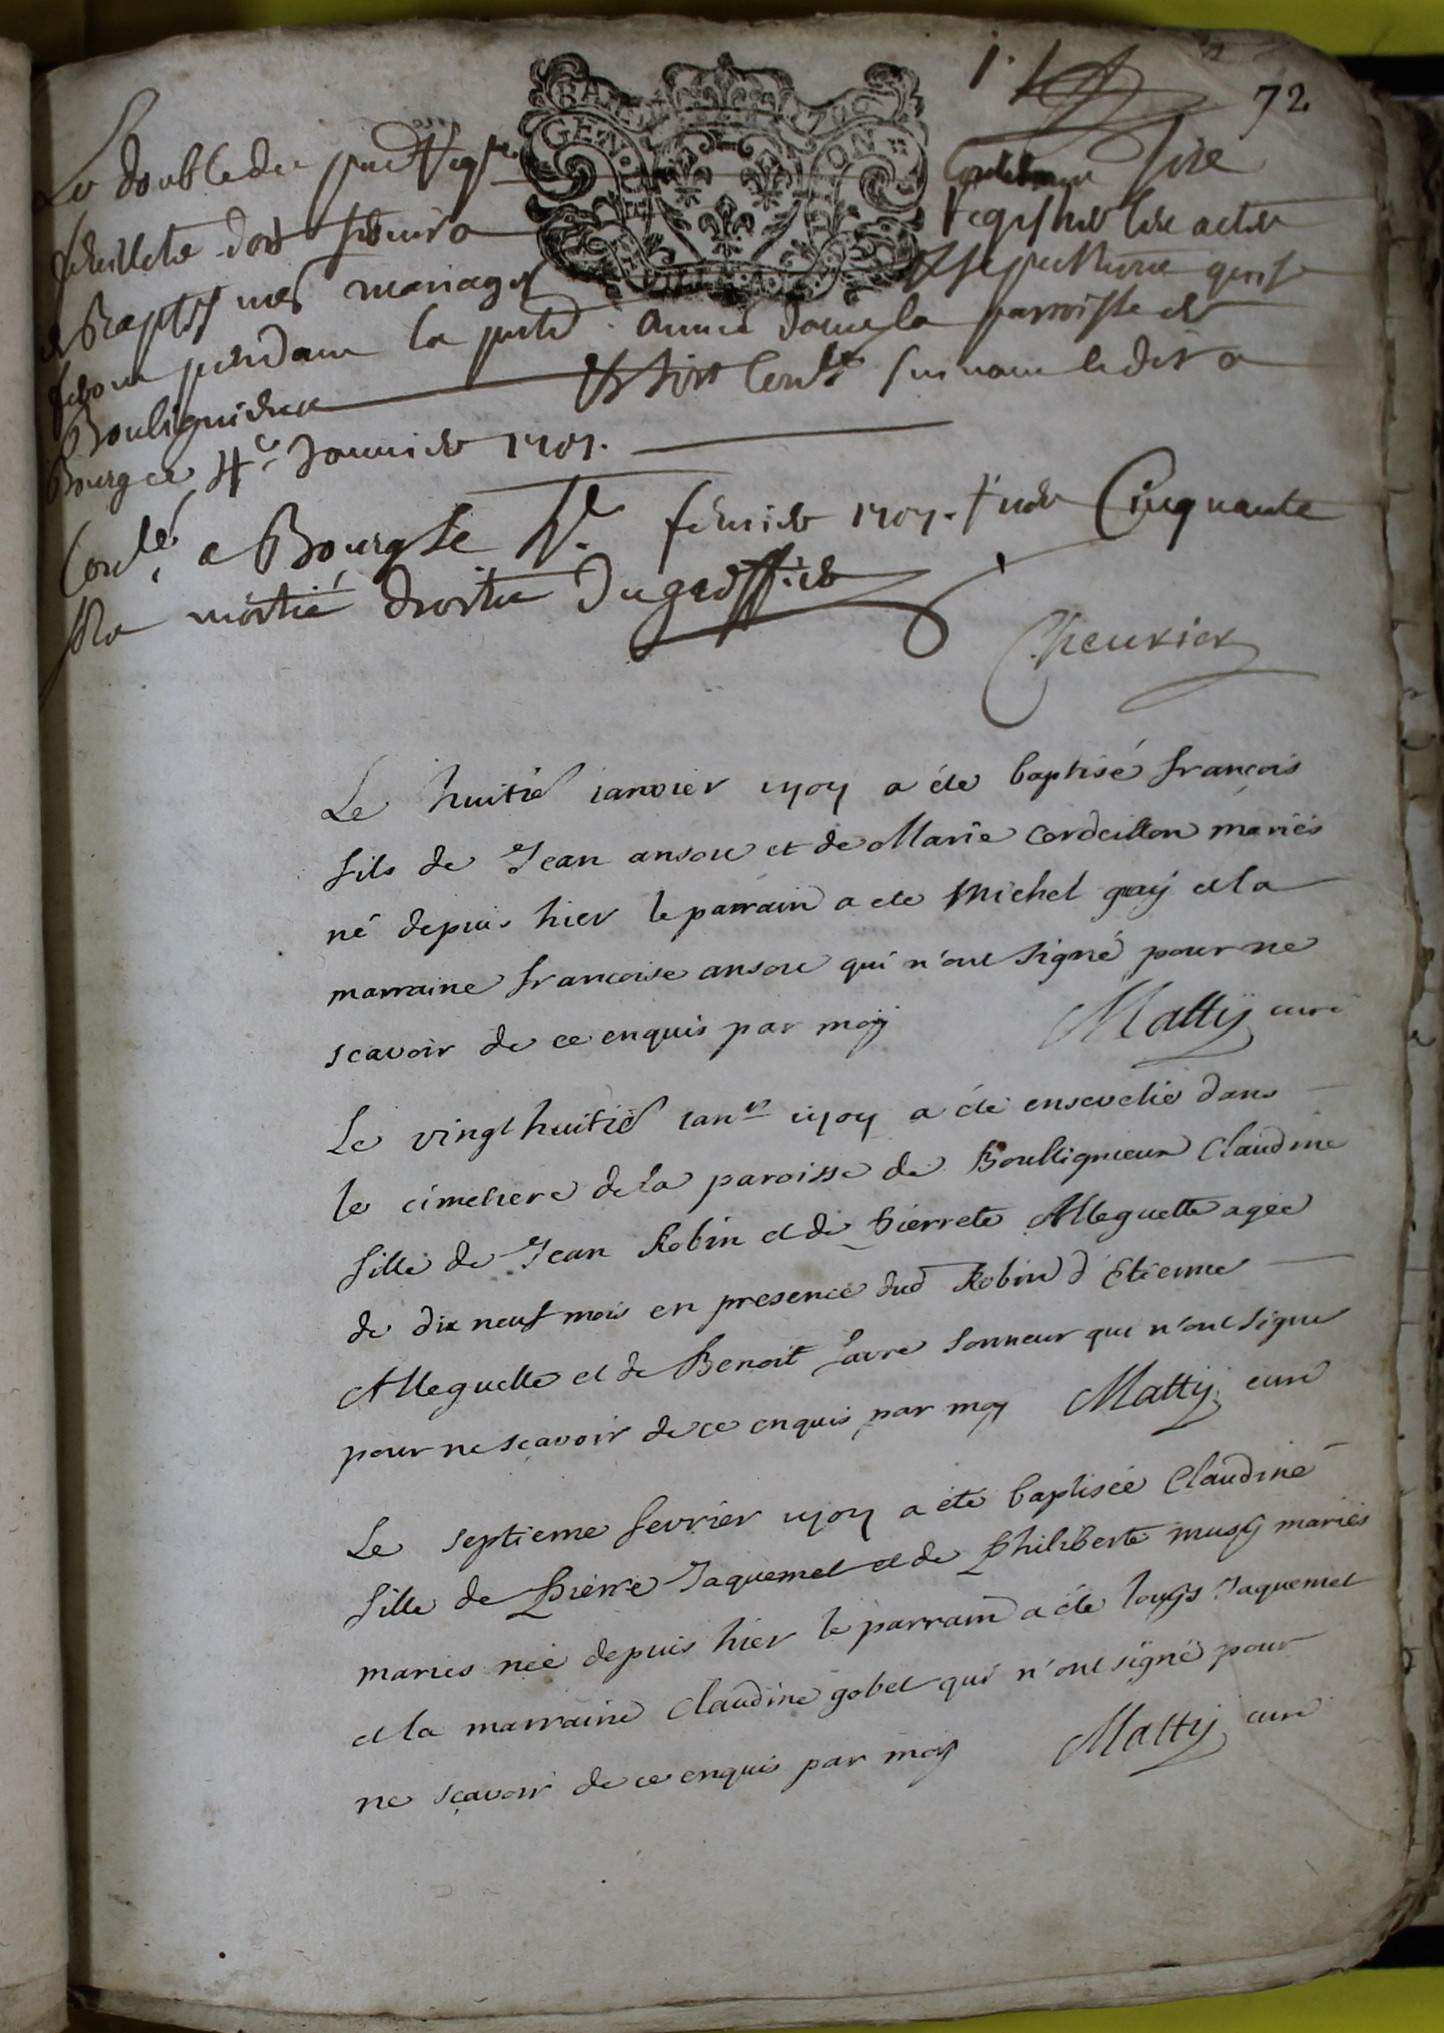 72
Le double du pnt Reg^re contenant six
feuillets dont servira Registre les actes
de Baptesmes mariages & sepultures qui se
feront pendant la pnte Annee dans la parroisse de
Bouligneux
Bourg ce 4e Janvier 1707.
Con^lé a Bourg le fevrier 1707. Cinquante
moitié droitte du greffier
Cheurier
Le huitie ianvier 1707 a éte baptisé françois
fils de Jean ansou et de Marie Cordeillon mariés
né depuis hier le parrain a ete Michel guy et la
marraine francoise ansou qui n'ont signé pour ne
scavoir de ce enquis par moy Matty curé
Le vingt huitie ianvr 1707 a été ensevelie dans
le cimetiere de la paroisse de Boulligneux Claudine
fille de Jean Robin et de Pierrete Alleguette agée
de dix neuf mois en presence dud Robin d'Etienne
Alleguette et de Benoit favre sonneur qui n'ont signé
pour ne sçavoir de ce enquis par moy Matty curé
Le septieme fevrier 1707 a été baptisée Claudine
fille de Pierre Jaquemet et de Philiberte musy mariés
mariés née depuis hier le parrain a éte louys Jaquemet
et la marraine Claudine gobet qui n'ont signé pour
ne sçavoir de ce enquis par moy Matty curé